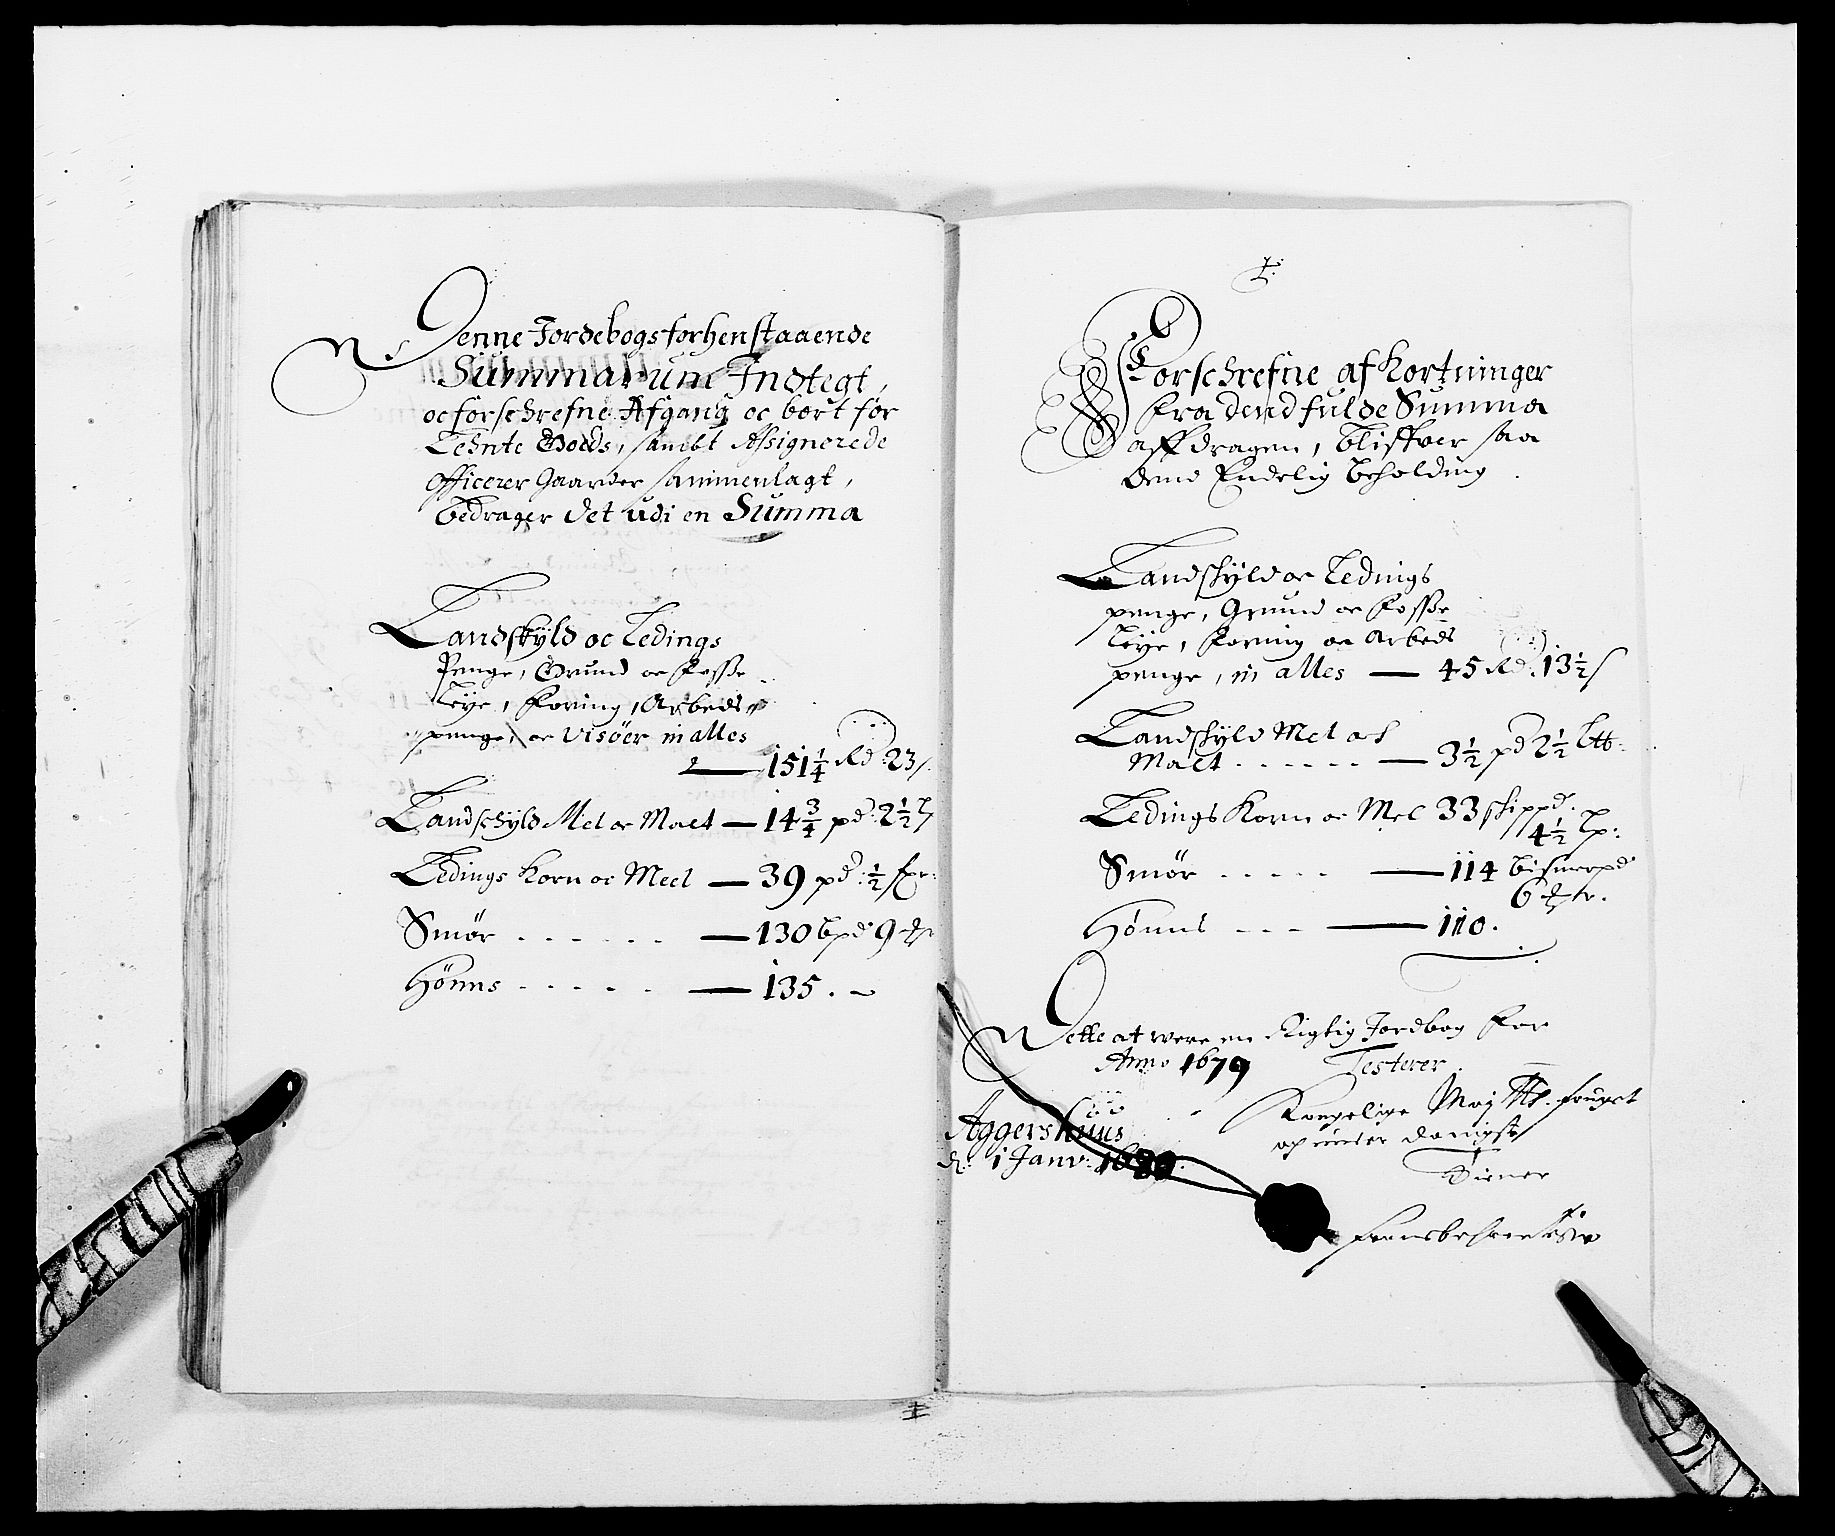 Denne Jordebogs forhenstaaende
Summarum Indtegt,
oc forschrefne Afgang oc bort før
Lehnte Goeds, sambt Assignerede
Officerer Gaarder sammenlagt,
bedrager det udi en Summa
Landskyld oc Ledings
Penge, Grund oc Fosse
Leye, Foring, Arbeds
penge, oc Visöer in alles
151 1/4 Rd 23 s.
Landschyld Mel oc Malt — 14 3/4 pd: 2 1/2 l
Ledings Korn oc Meel — 39 pd: 1/2
Smør - - - - - - — 130 bpd 9
Hønns - - - - - — 135.
Forschrefne afkortninger
fra dend fulde Summa
affdragen, bliffver saa
dend Endelig beholding.
Landskyld oc Ledings
penge, Grund oc Fosse
leye, Foring oc Arbeds
penge, in alles — 45 Rd. 13 1/2 s
Landskyld Mel och
Malt - - - - - - — 3 1/2 pd 2 1/2 ltt:
Ledings Korn oc Mel 33 skippd.
4 1/2 lp:
Smør - - - - - — 114 bismerpd
6
Hønns - - - — 110.
Dette at were en Rigtig Jordbog for
Anno 1679 Testerer.
Aggershuus
d: 1 Janv: 1680.
Kongelige Maj tts.
Diener